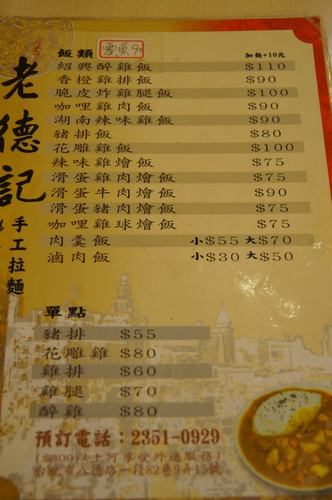 老德記
手工拉麵
飯類
加飯+10元
紹興醉雞飯 $110
香橙雞排飯 $90
脆皮炸雞腿飯 $100
咖哩雞肉飯 $90
湖南辣味雞飯 $90
豬排飯 $80
花雕雞飯 $100
辣味雞燴飯 $75
滑蛋雞肉燴飯 $75
滑蛋牛肉燴飯 $90
滑蛋豬肉燴飯 $75
咖哩雞球燴飯 $75
肉羹飯 小$55 大$70
滷肉飯 小$30 大$50
單點
豬排 $55
花雕雞 $80
雞排 $60
雞腿 $70
醉雞 $80
預訂電話:2351-0929
($300以上可享受外送服務)
台北市八德路一段82巷9弄15號